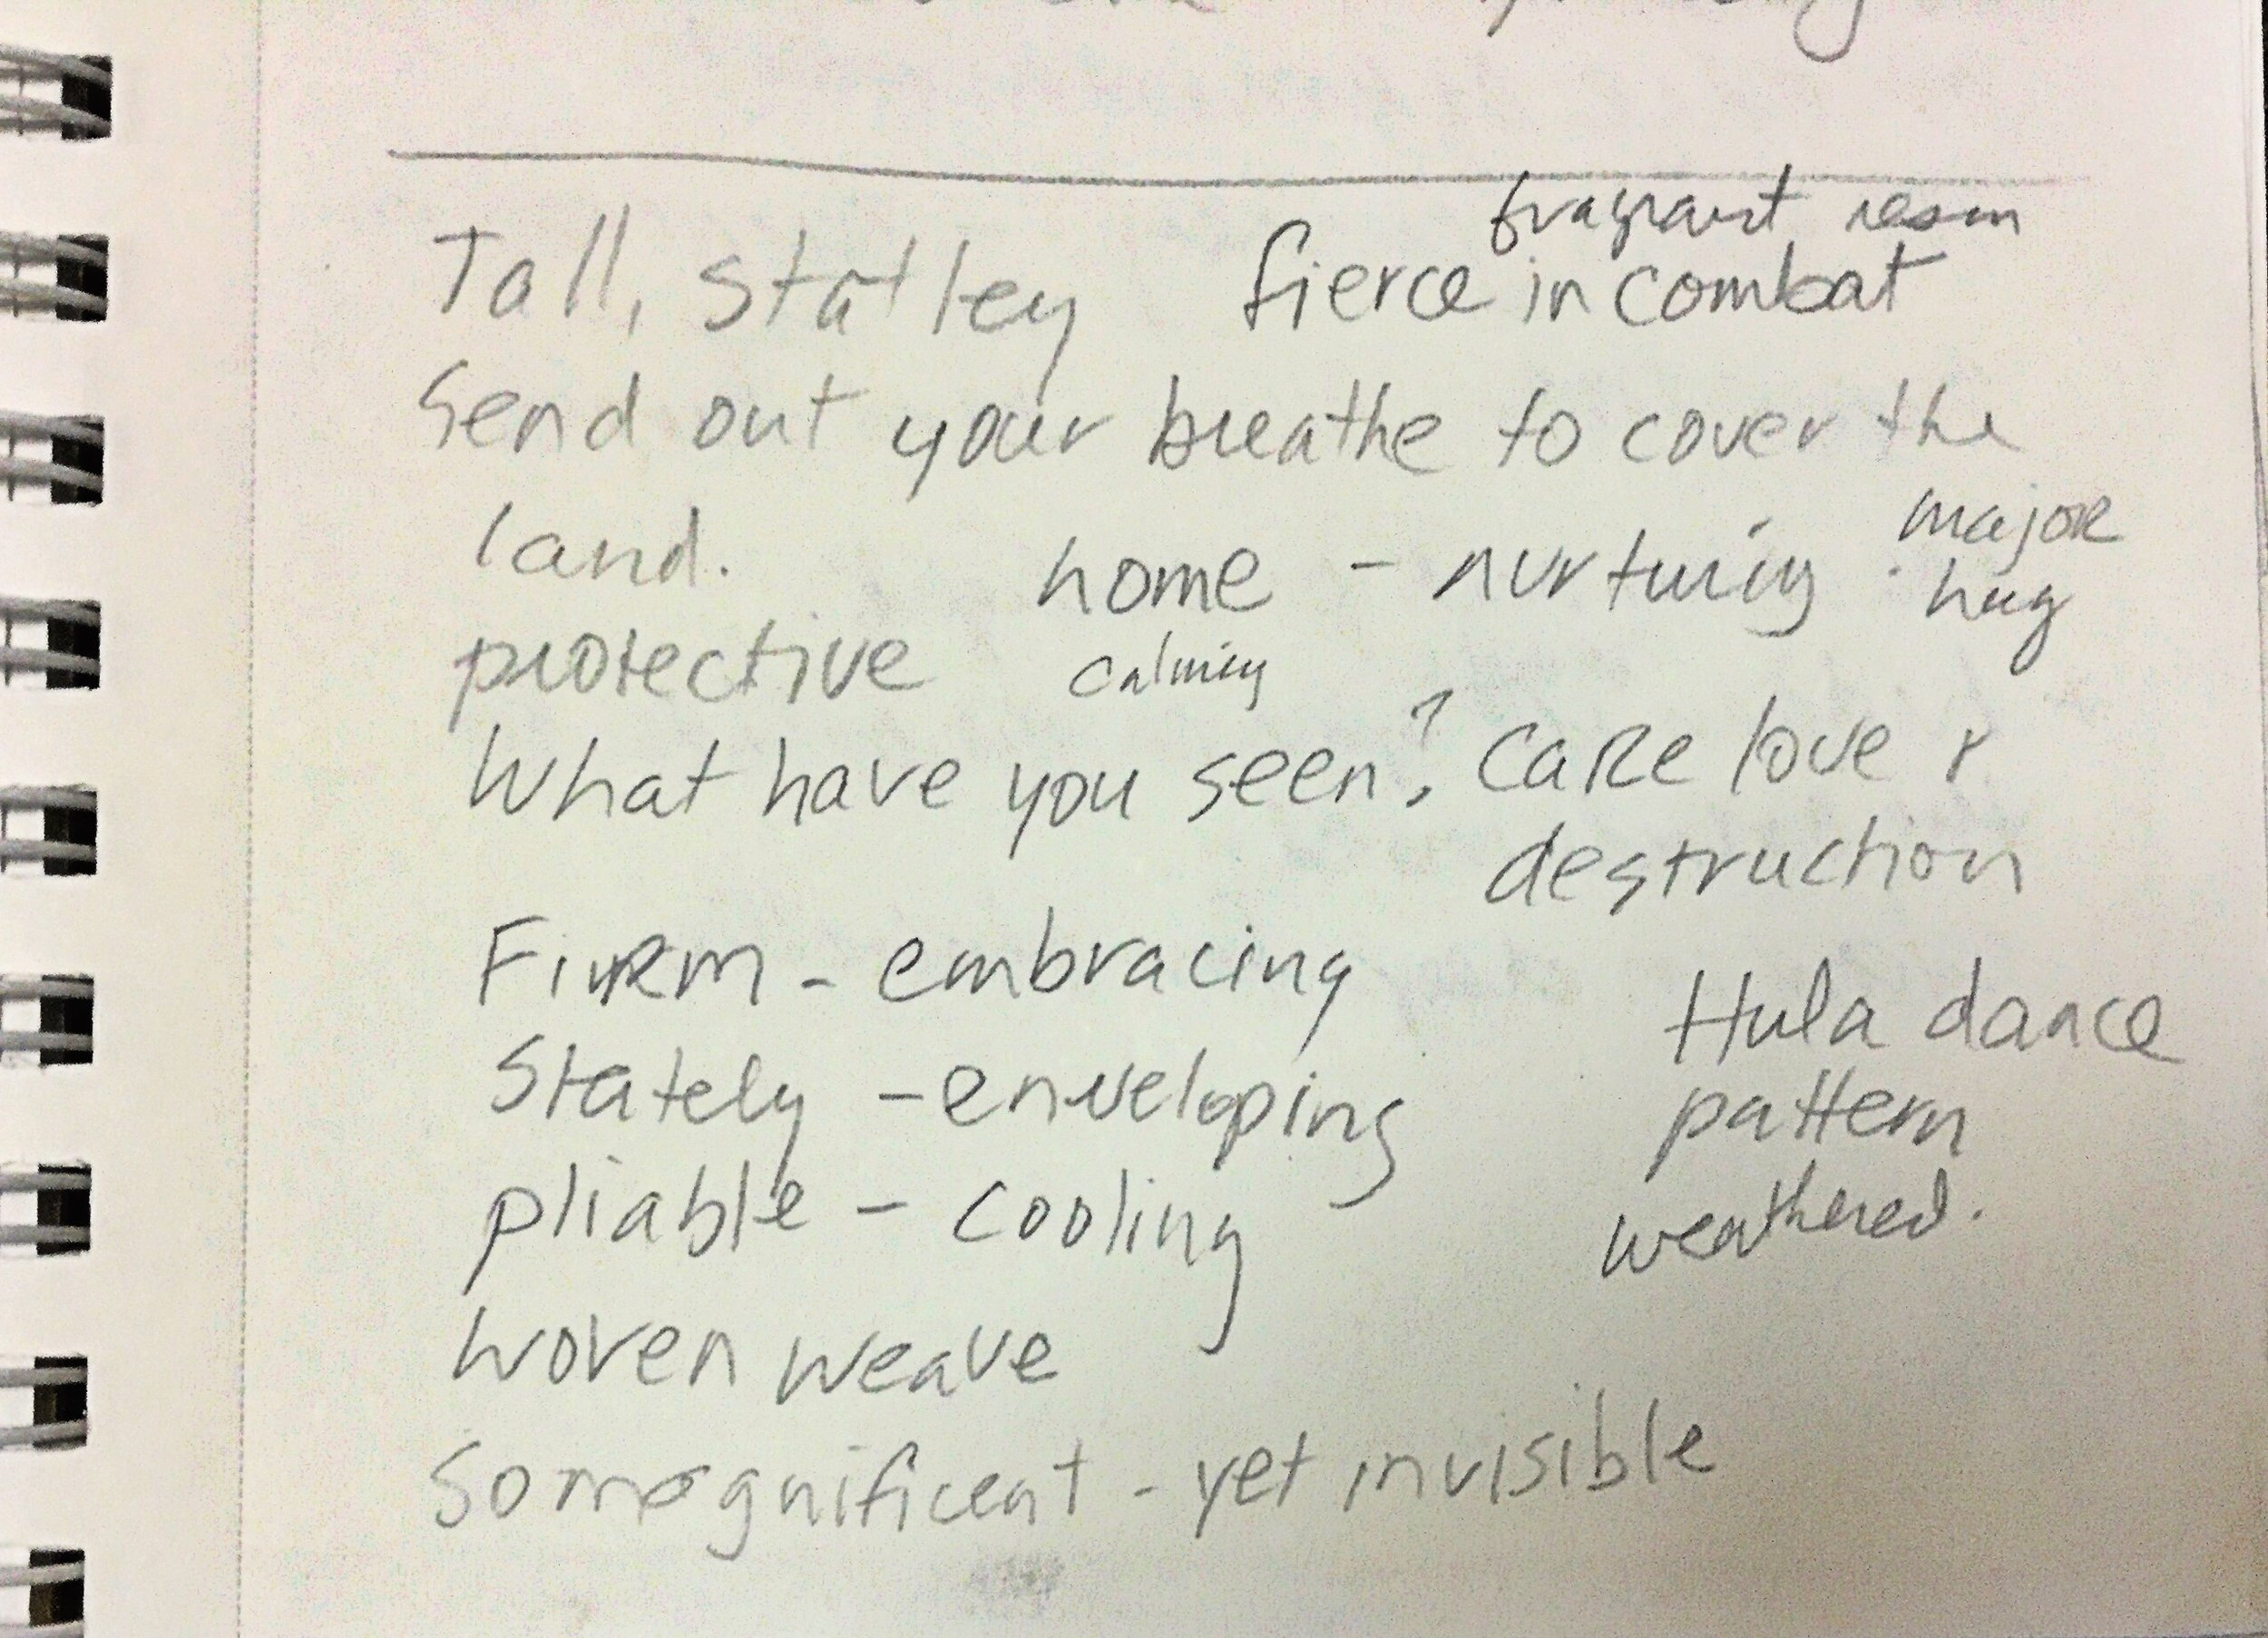 fragrant resin
Tall, statley fierce in combat
Send out your breathe to cover the
land. home - nurturing. major
hug
protective calming
What have you seen? Care love &
destruction
Firm - embracing
Hula dance
Stately - enveloping
pattern
pliable - cooling
weathered.
woven weave
So magnificent - yet invisible